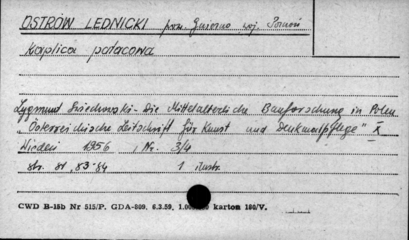 OSTRÓW LEDNICKI pow. Gniezno woj. Poznań
kaplica pałacowa
Zygmunt Świechowski - Die Mittelalterliche Bauforschung in Polen
"Österreichische Zeitschrift für Kunst und Denkmalpflege" X
Wiedeń 1956, Nr. 3/4
str. 81, 83-84 1 ilustr.
CWD B-15b Nr 515/P. GDA-809. 6.3.59, 1.00 karton 180/V.